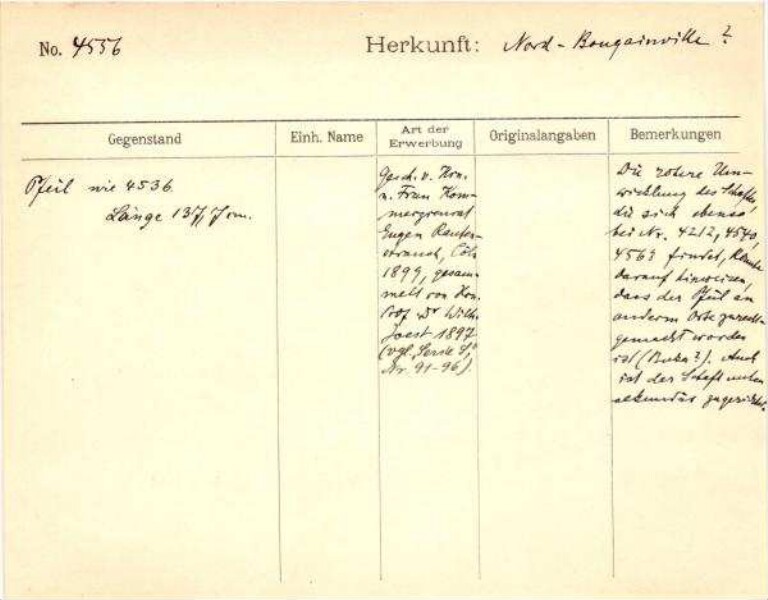 No. 4556
Herkunft: Nord-Bougainville?
Gegenstand
Einh. Name
Art der Erwerbung
Originalangaben
Bemerkungen
Pfeil wie 4536.
Länge 137,7 cm.
Gesch. v. Hrn.
u. Frau Kom-
merzienrat
Eugen Rauten-
strauch, Cöln
1899, gesam-
melt von Hrn.
Prof. Dr Wilh.
Joest 1897
(vgl. Serie S,
Nr. 91-96).
Die rotere Um-
wicklung des Schaftes,
die sich ebenso
bei Nr. 4212, 4540,
4563 findet, könnte
darauf hinweisen,
dass der Pfeil an
anderem Orte zurecht-
gemacht worden
ist (Buka?). Auch
ist der Schaft unten
sekundär zugerichtet.